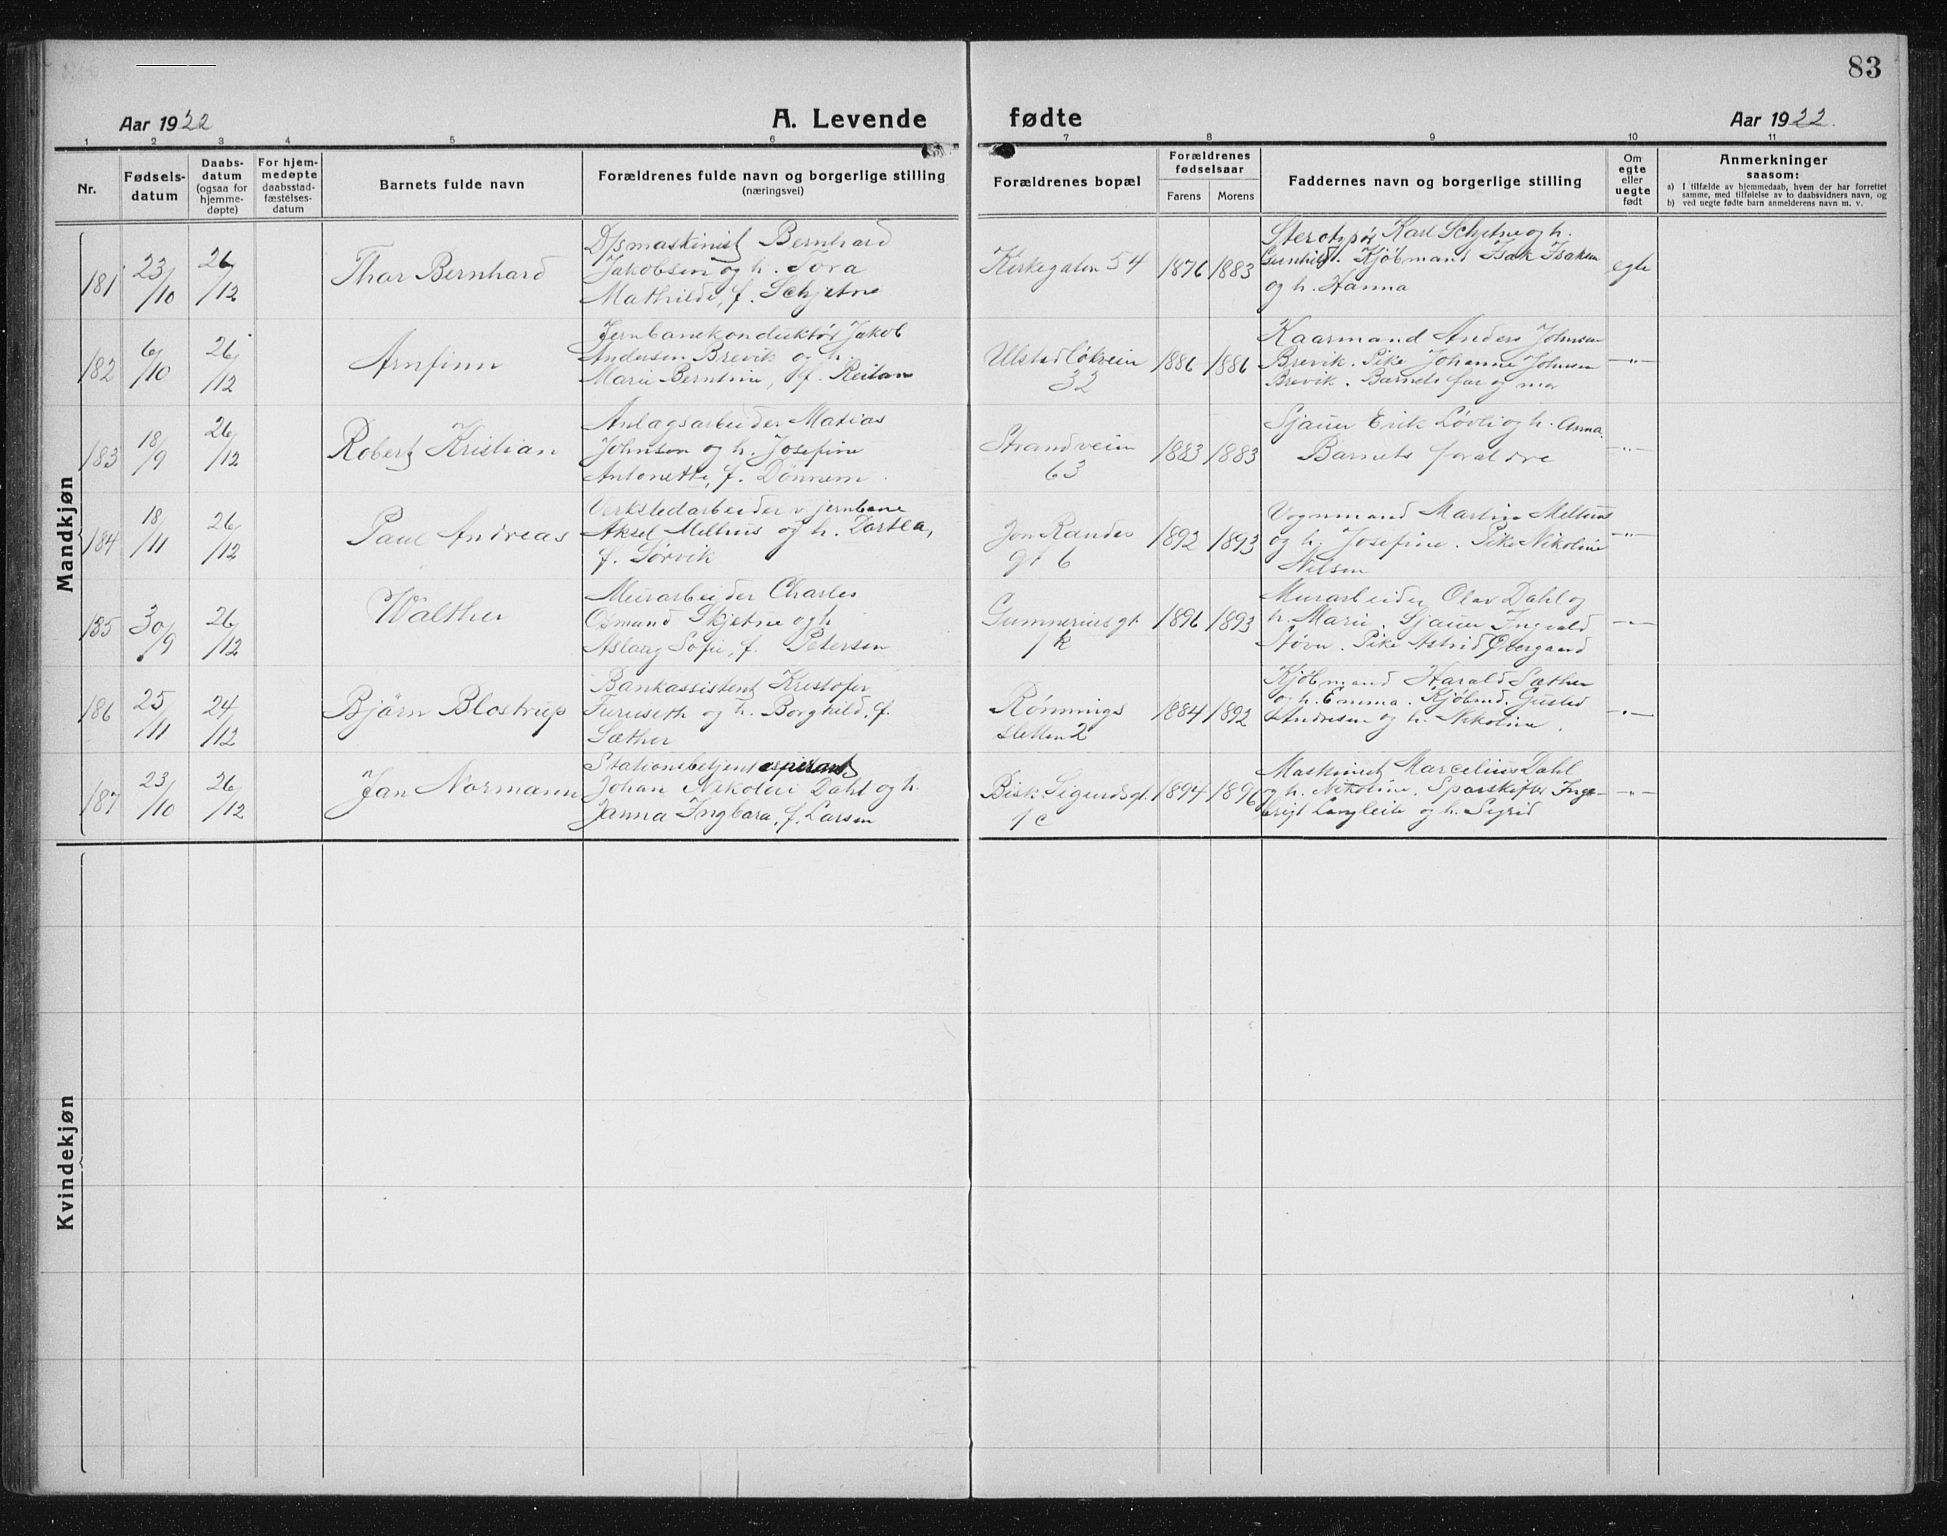 83
Aar 1922
A. Levende
fødte
Aar 1922.
1 2 3 4 5 6 7 8 9 10 11
Nr.
Fødsels-
datum
Daabs-
datum
(ogsaa for
hjemme-
døpte)
For hjem-
medøpte
daabsstad-
fæstelses-
datum
Barnets fulde navn
Forældrenes fulde navn og borgerlige stilling
(næringsvei)
Forældrenes bopæl
Forældrenes
fødselsaar
Farens
Morens
Faddernes navn og borgerlige stilling
Om
egte
eller
uegte
født
Anmerkninger
saasom:
a) I tilfælde av hjemmedaab, hvem der har forrettet
samme, med tilføielse av to daabsvidners navn, og
b) ved uegte fødte barn anmelderens navn m. v.
Mandkjøn
181
23/10
26/12
Thor Bernhard
D/smaskinist Bernhard
Jakobsen og h. Tora
Mathilde, f. Schjetne
Kirkegaten 54
1876
1883
Karl Schjetne og h.
Gunhild. Kjøbmand Isak Isaksen
og h. Hanna
egte
182
6/10
26/12
Arnfinn
Jernbanekonduktør Jakob
Andersen Brevik og h.
Marie Berntine, f. Reitan
Ulstadløkvein
32
1886
1886
Kaarmand Anders Johnsen
Brevik. Pike Johanne Johnsen
Brevik. Barnets far og mor
—"—
183
18/9
26/12
Robert Kristian
Anlagsarbeider Matias
Johnsen og h. Josefine
Antonette, f. Dønnem.
Strandveien
63
1883
1883
Sjauer Erik Løvli og h. Anna.
Barnets foraldre
—"—
184
18/11
26/12
Paul Andreas
Verkstedarbeider v. jernbane
Aksel Melhus og h. Dortea,
f. Sørvik
Jon Raudes
gt 6
1892
1893
Vognmand Martin Melhus
og h. Josefine. Pike Nikoline
Nilsen
—"—
185
30/9
26/12
Walther
Murarbeider Charles
Osmand Skjetne og h
Aslaug Sofie, f. Petersen
Gunnerius gt.
1k
1896
1893
Murarbeider Olav Dahl og
h. Marie. Sjauer Ingvald
Støvn. Pike Astrid Østergaard
—"—
186
25/11
24/12
Bjørn Blostrup
Bankassistent Kristofer
Furuseth og h. Borghild, f.
Sæther
Rønnings
sletten 2
1884
1892
Kjøbmand Harald Sæther
og h. Emma. Kjøbmd. Gustad
Andresen og h. Nikoline.
—"—
187
23/10
26/12
Jan Normann
Stationsbetjentaspirant
Johan Nikolai Dahl og h.
Janna Ingbara, f. Larsen
Bisk. Sigurdsgt.
1c
1894
1896
Maskinist Marcelius Dahl
og h. Nikoline. Sporskifter Inge-
brigt Langleite og h. Sigrid
—"—
Kvindekjøn